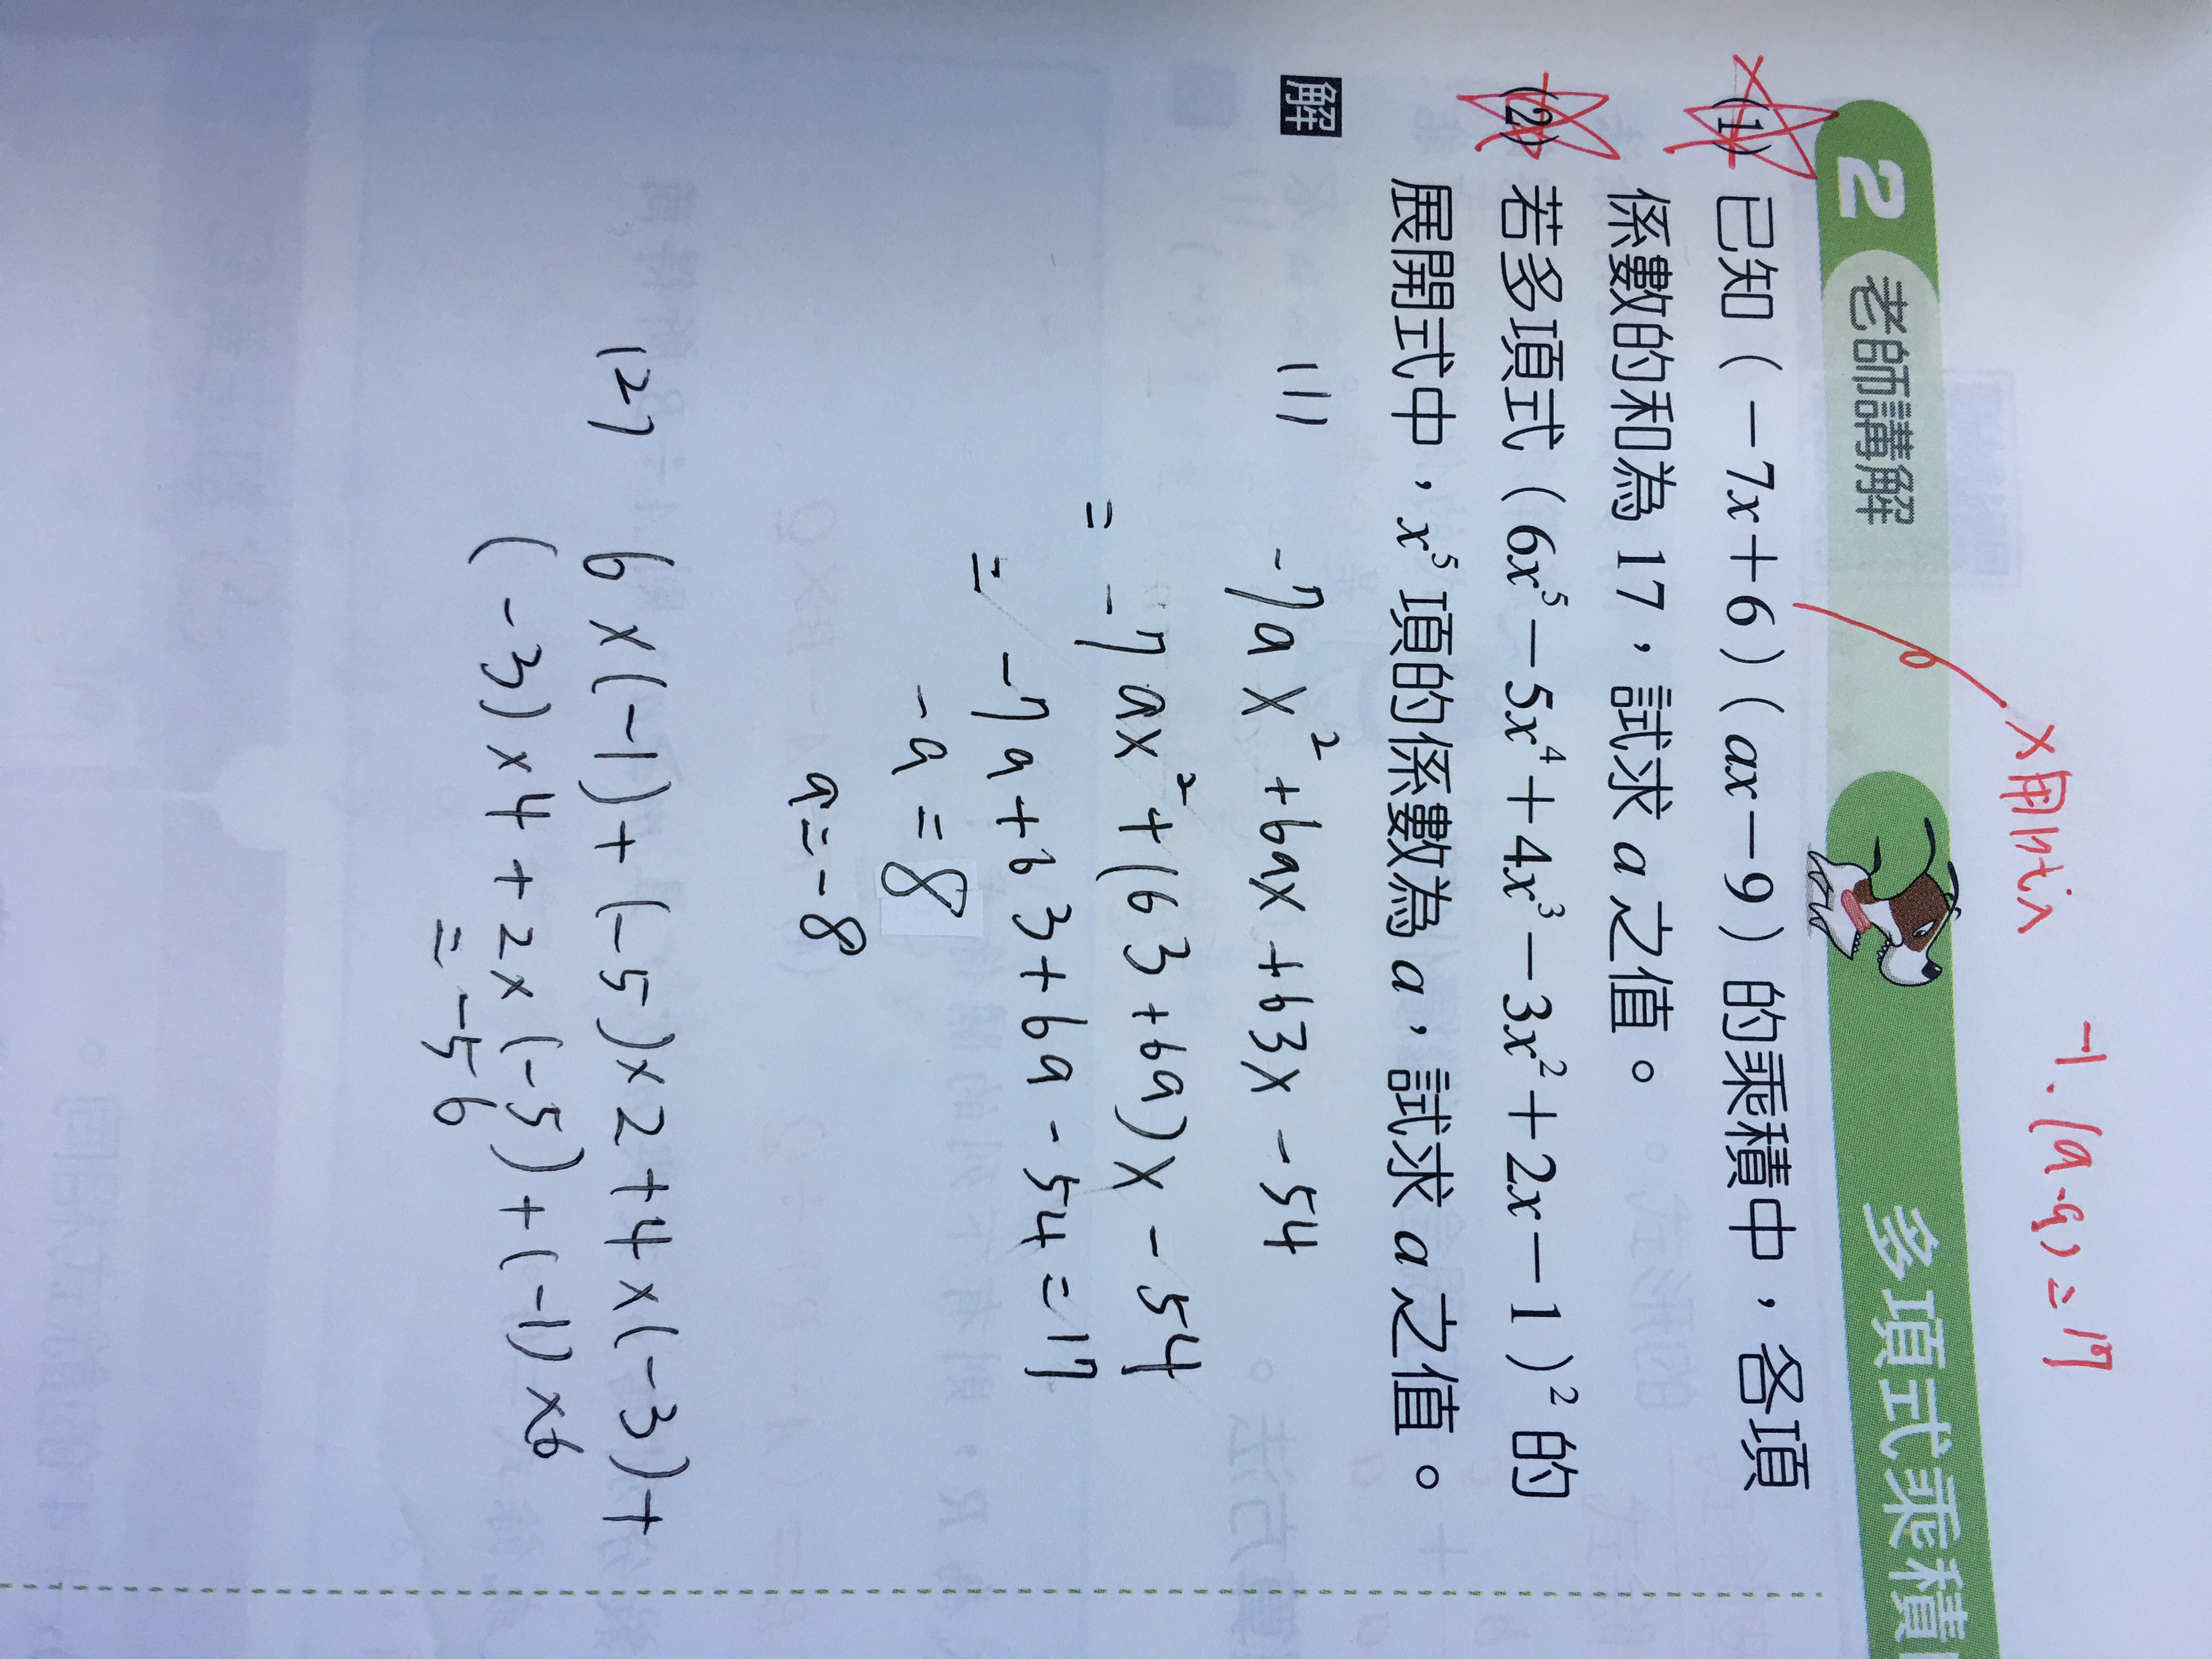 -1.(a-9)=17
x用1代入
2 老師講解 多項式乘積
(1) 已知（－7x＋6）（ax－9）的乘積中，各項
係數的和為 17，試求 a 之值。
(2) 若多項式（6x⁵－5x⁴＋4x³－3x²＋2x－1）² 的
展開式中，x⁵ 項的係數為 a，試求 a 之值。
解
(1) -7ax²+6ax+63x-54
= -7ax²+(63+6a)x-54
= -7a+63+6a-54=17
-a=8
a=-8
(2) 6x(-1)+(-5)x2+4x(-3)+
(-3)x4+2x(-5)+(-1)x6
=-56